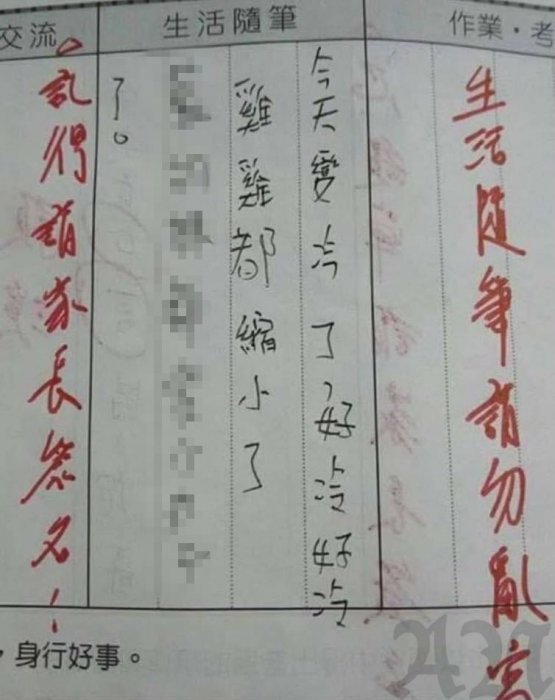 作業．考
生活隨筆請勿亂寫
生活隨筆
今天變冷了,好冷好冷
雞雞都縮小了
了。
交流
記得請家長簽名!
，身行好事。